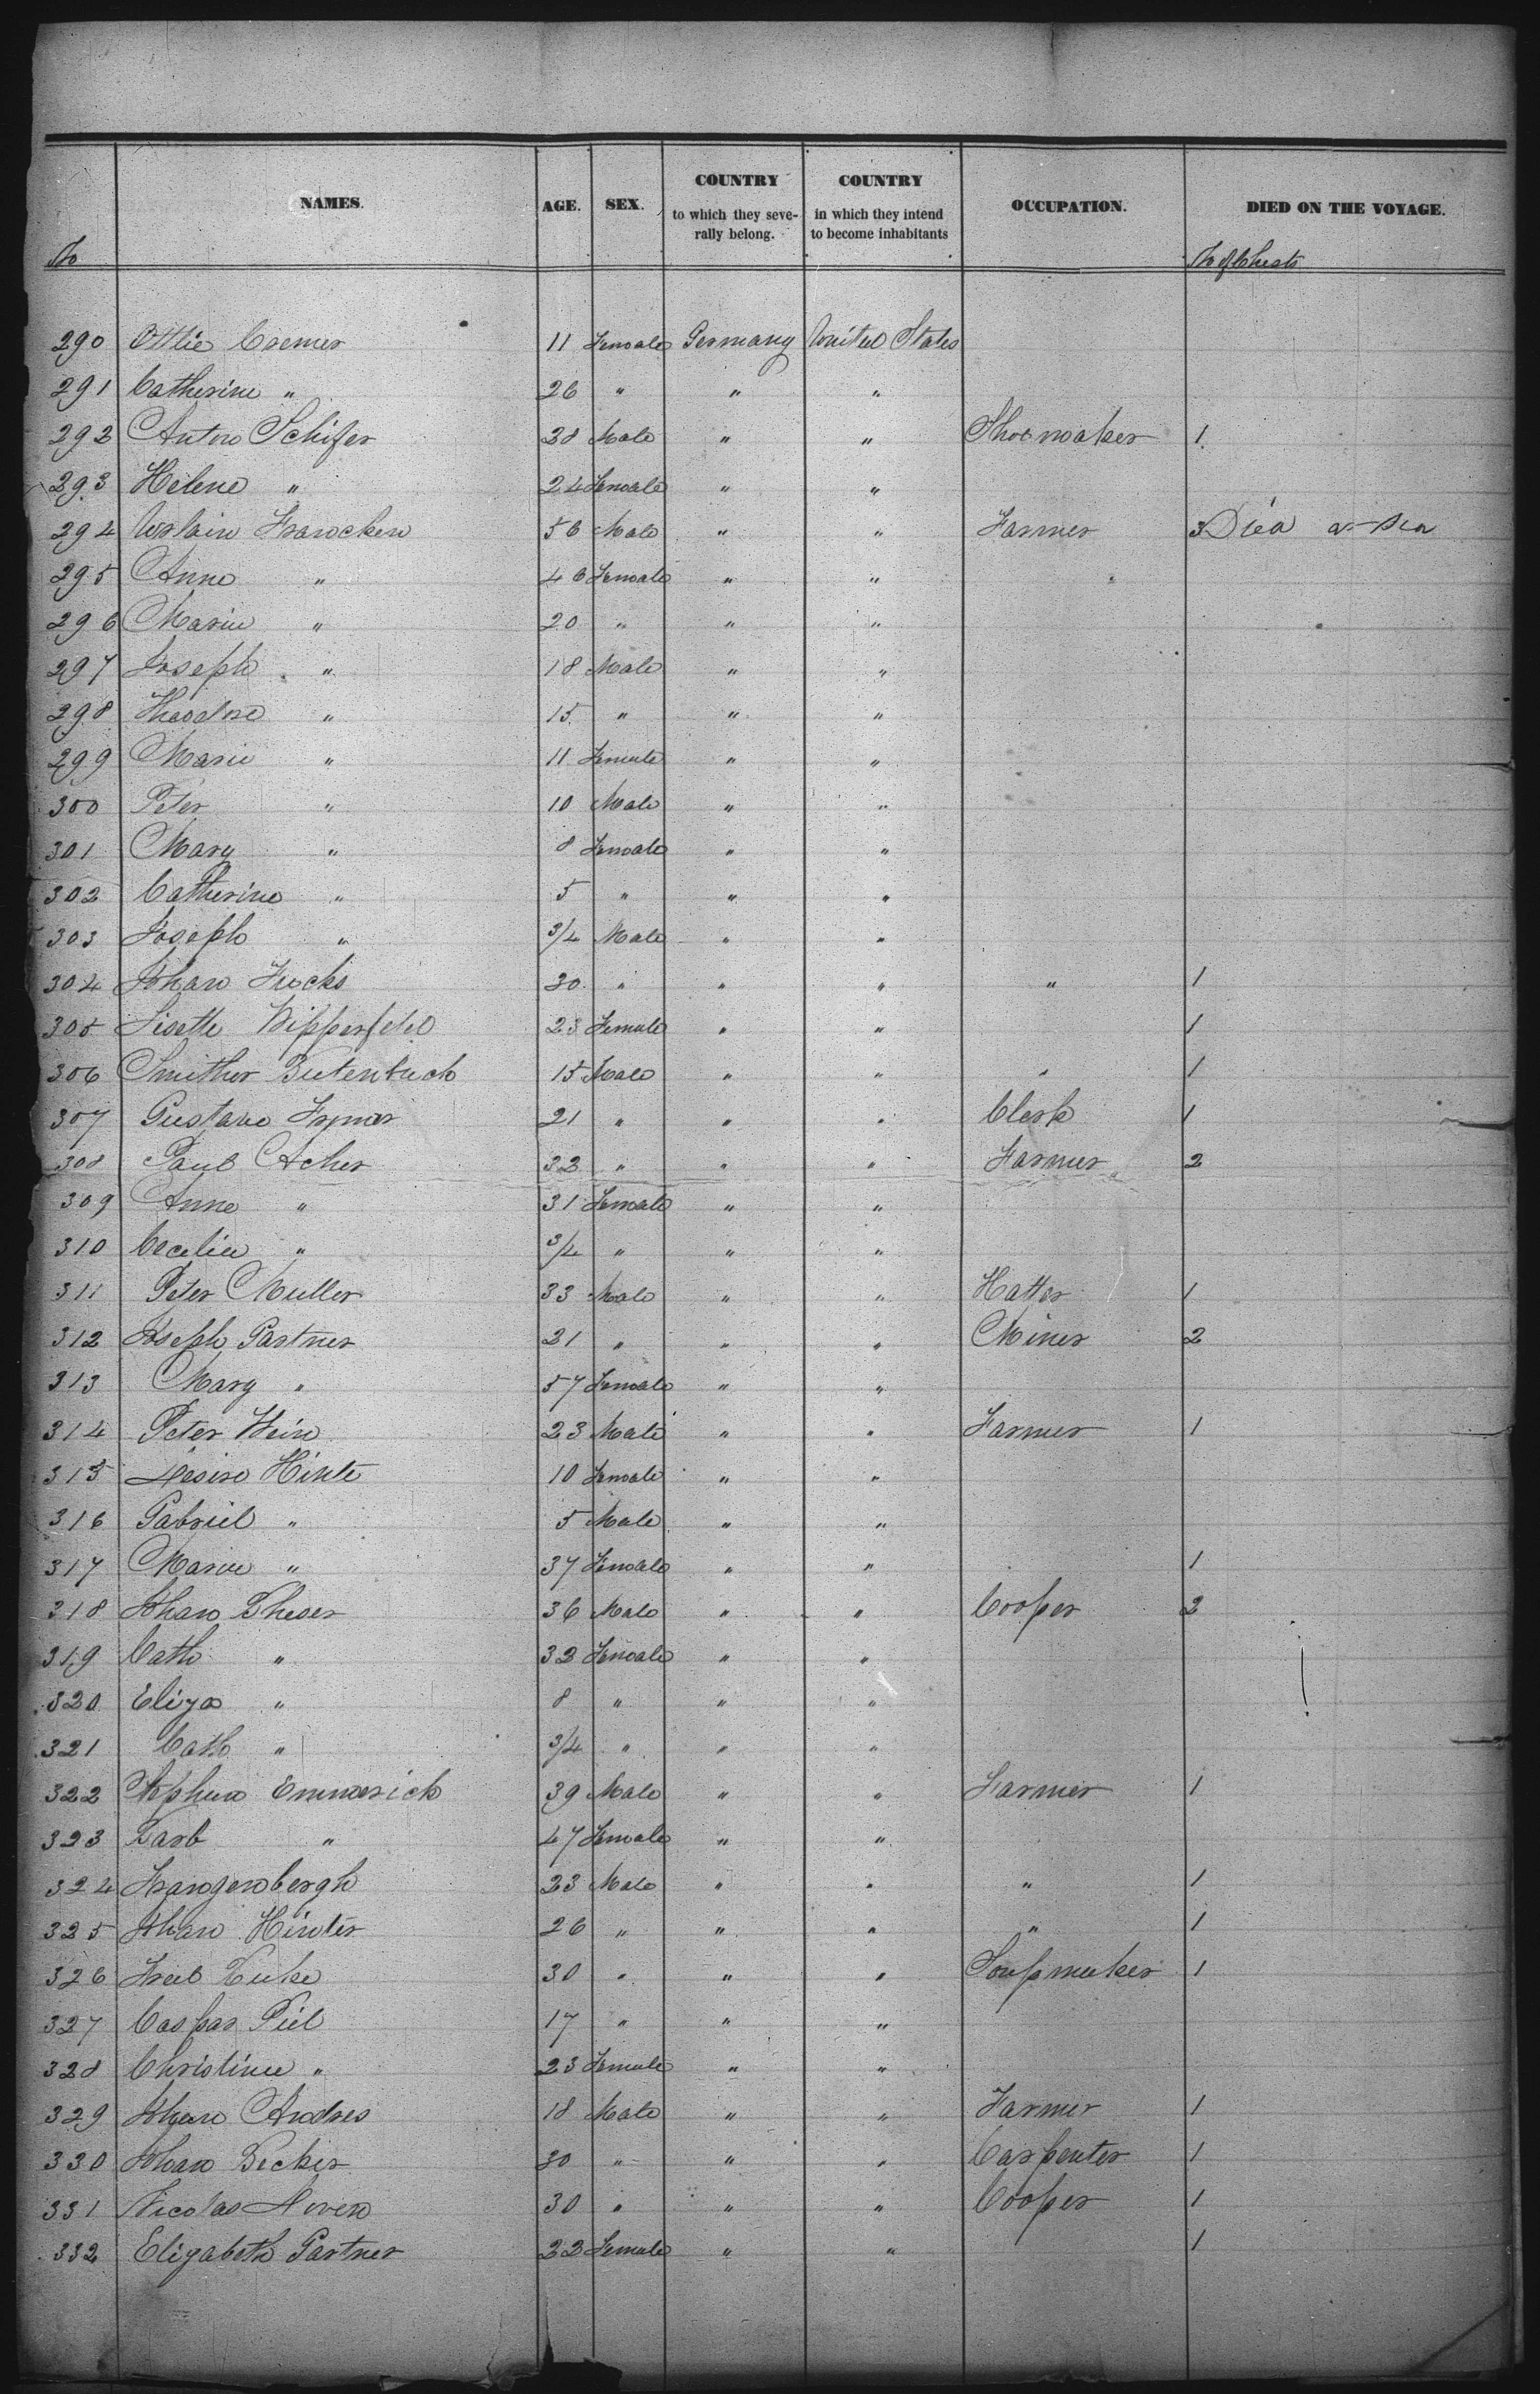 NAMES. AGE. SEX. COUNTRY to which they seve-rally belong. COUNTRY in which they intend to become inhabitants OCCUPATION. DIED ON THE VOYAGE.
No No of Chests
290 Ottlie Cremer 11 Female Germany United States
291 Catherine " 26 " " "
292 Anton Schifer 28 Male " " Shoemaker 1
293 Helene " 24 Female " "
294 Francken 56 Male " " Farmer 3 Died at Sea
295 Anne " 46 Female " "
296 Marie " 20 " " "
297 Joseph " 18 Male " "
298 Theodore " 15 " " "
299 Marie " 11 Female " "
300 Peter " 10 Male " "
301 Mary " 8 Female " "
302 Catherine " 5 " " "
303 Joseph " 3/4 Male " "
304 Johan Fuchs 30 " " " " 1
305 Lisette Wipperfeld 23 Female " " 1
306 Butenbuch 15 Male " " " 1
307 Gustave 21 " " " Clerk 1
308 Paul Acher 32 " " " Farmer 2
309 Anne " 31 Female " "
310 Cecelia " 3/4 " " "
311 Peter Muller 33 Male " " Hatter 1
312 Joseph Partner 21 " " " Miner 2
313 Mary " 57 Female " "
314 Peter Hein 23 Male " " Farmer 1
315 Desire Hinte 10 Female " "
316 Gabriel " 5 Male " "
317 Marie " 37 Female " " 1
318 Johan Theser 36 Male " " Cooper 2
319 Cath " 32 Female " "
320 Eliza " 8 " " "
321 Cath " 3/4 " " "
322 Stephen Emmerich 39 Male " " Farmer 1
323 Barb " 47 Female " "
324 Frangenbergh 23 Male " " " 1
325 Johan Hinter 26 " " " " 1
326 Fred 30 " " " Soapmaker 1
327 Caspar Piel 17 " " "
328 Christine " 23 Female " "
329 Johan Andres 18 Male " " Farmer 1
330 Johan Becker 30 " " " Carpenter 1
331 Nicolas 30 " " " Cooper 1
332 Elizabeth Partner 22 Female " " 1